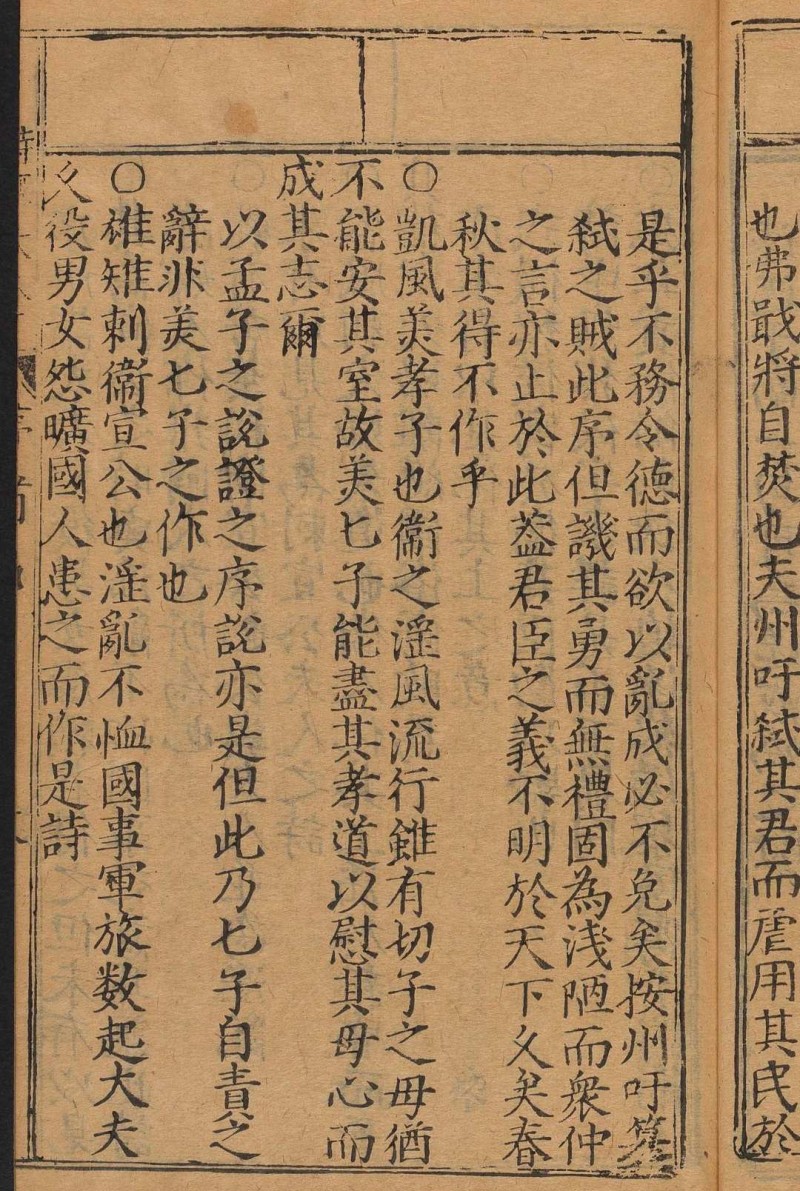 也弗戢將自焚也夫州吁弒其君而虐用其民於
是乎不務令德而欲以亂成必不免矣按州吁篡
弒之賊此序但譏其勇而無禮固為淺陋而衆仲
之言亦止於此葢君臣之義不明於天下乆矣春
秋其得不作乎
○凱風美孝子也衞之淫風流行雖有七子之母猶
不能安其室故美七子能盡其孝道以慰其母心而
成其志爾
以孟子之說證之序說亦是但此乃七子自責之
辭非美七子之作也
○雄雉刺衞宣公也淫亂不恤國事軍旅數起大夫
乆役男女怨曠國人患之而作是詩